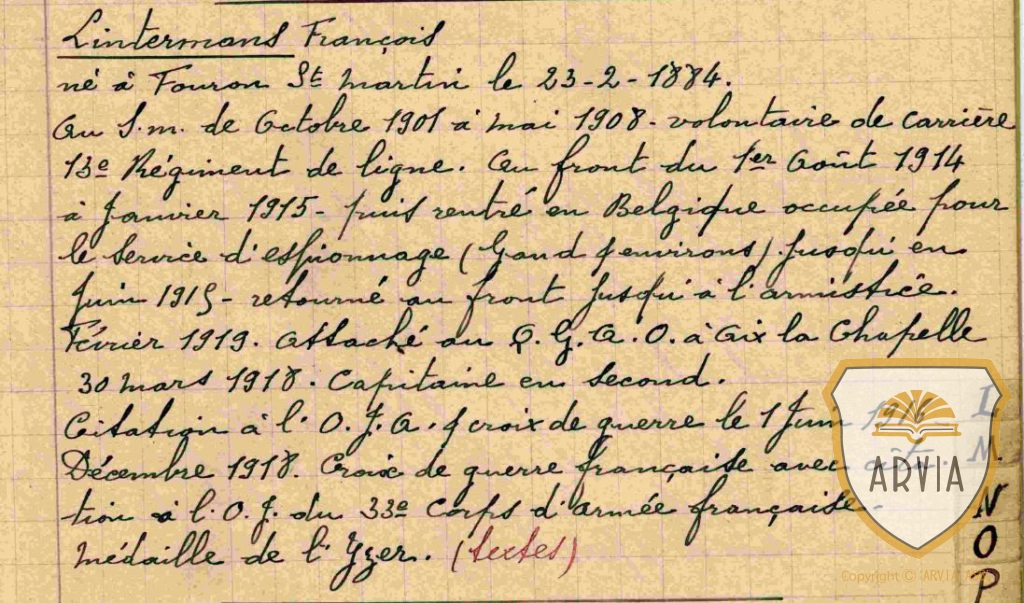 Lintermans François
né à Fouron St Martin le 23-2-1884.
Au S.m. de Octobre 1901 à mai 1908 - volontaire de carrière
13e Régiment de ligne. Au front du 1er Août 1914
à Janvier 1915 - puis rentré en Belgique occupée pour
le service d'espionnage (Gand & environs) jusqu'en
Juin 1915 - retourné au front jusqu'à l'armistice.
Février 1919. Attaché au Q.G.A.O. à Aix la Chapelle
30 mars 1918. Capitaine en second.
Citation à l'O.J.A. & croix de guerre le 1 Juin
Décembre 1918. Croix de guerre française avec
tion à l'O.J. du 33e Corps d'armée française.
Médaille de l'Yzer. (textes)
L
M
N
O
P
ARVIA
Copyright © ARVIA